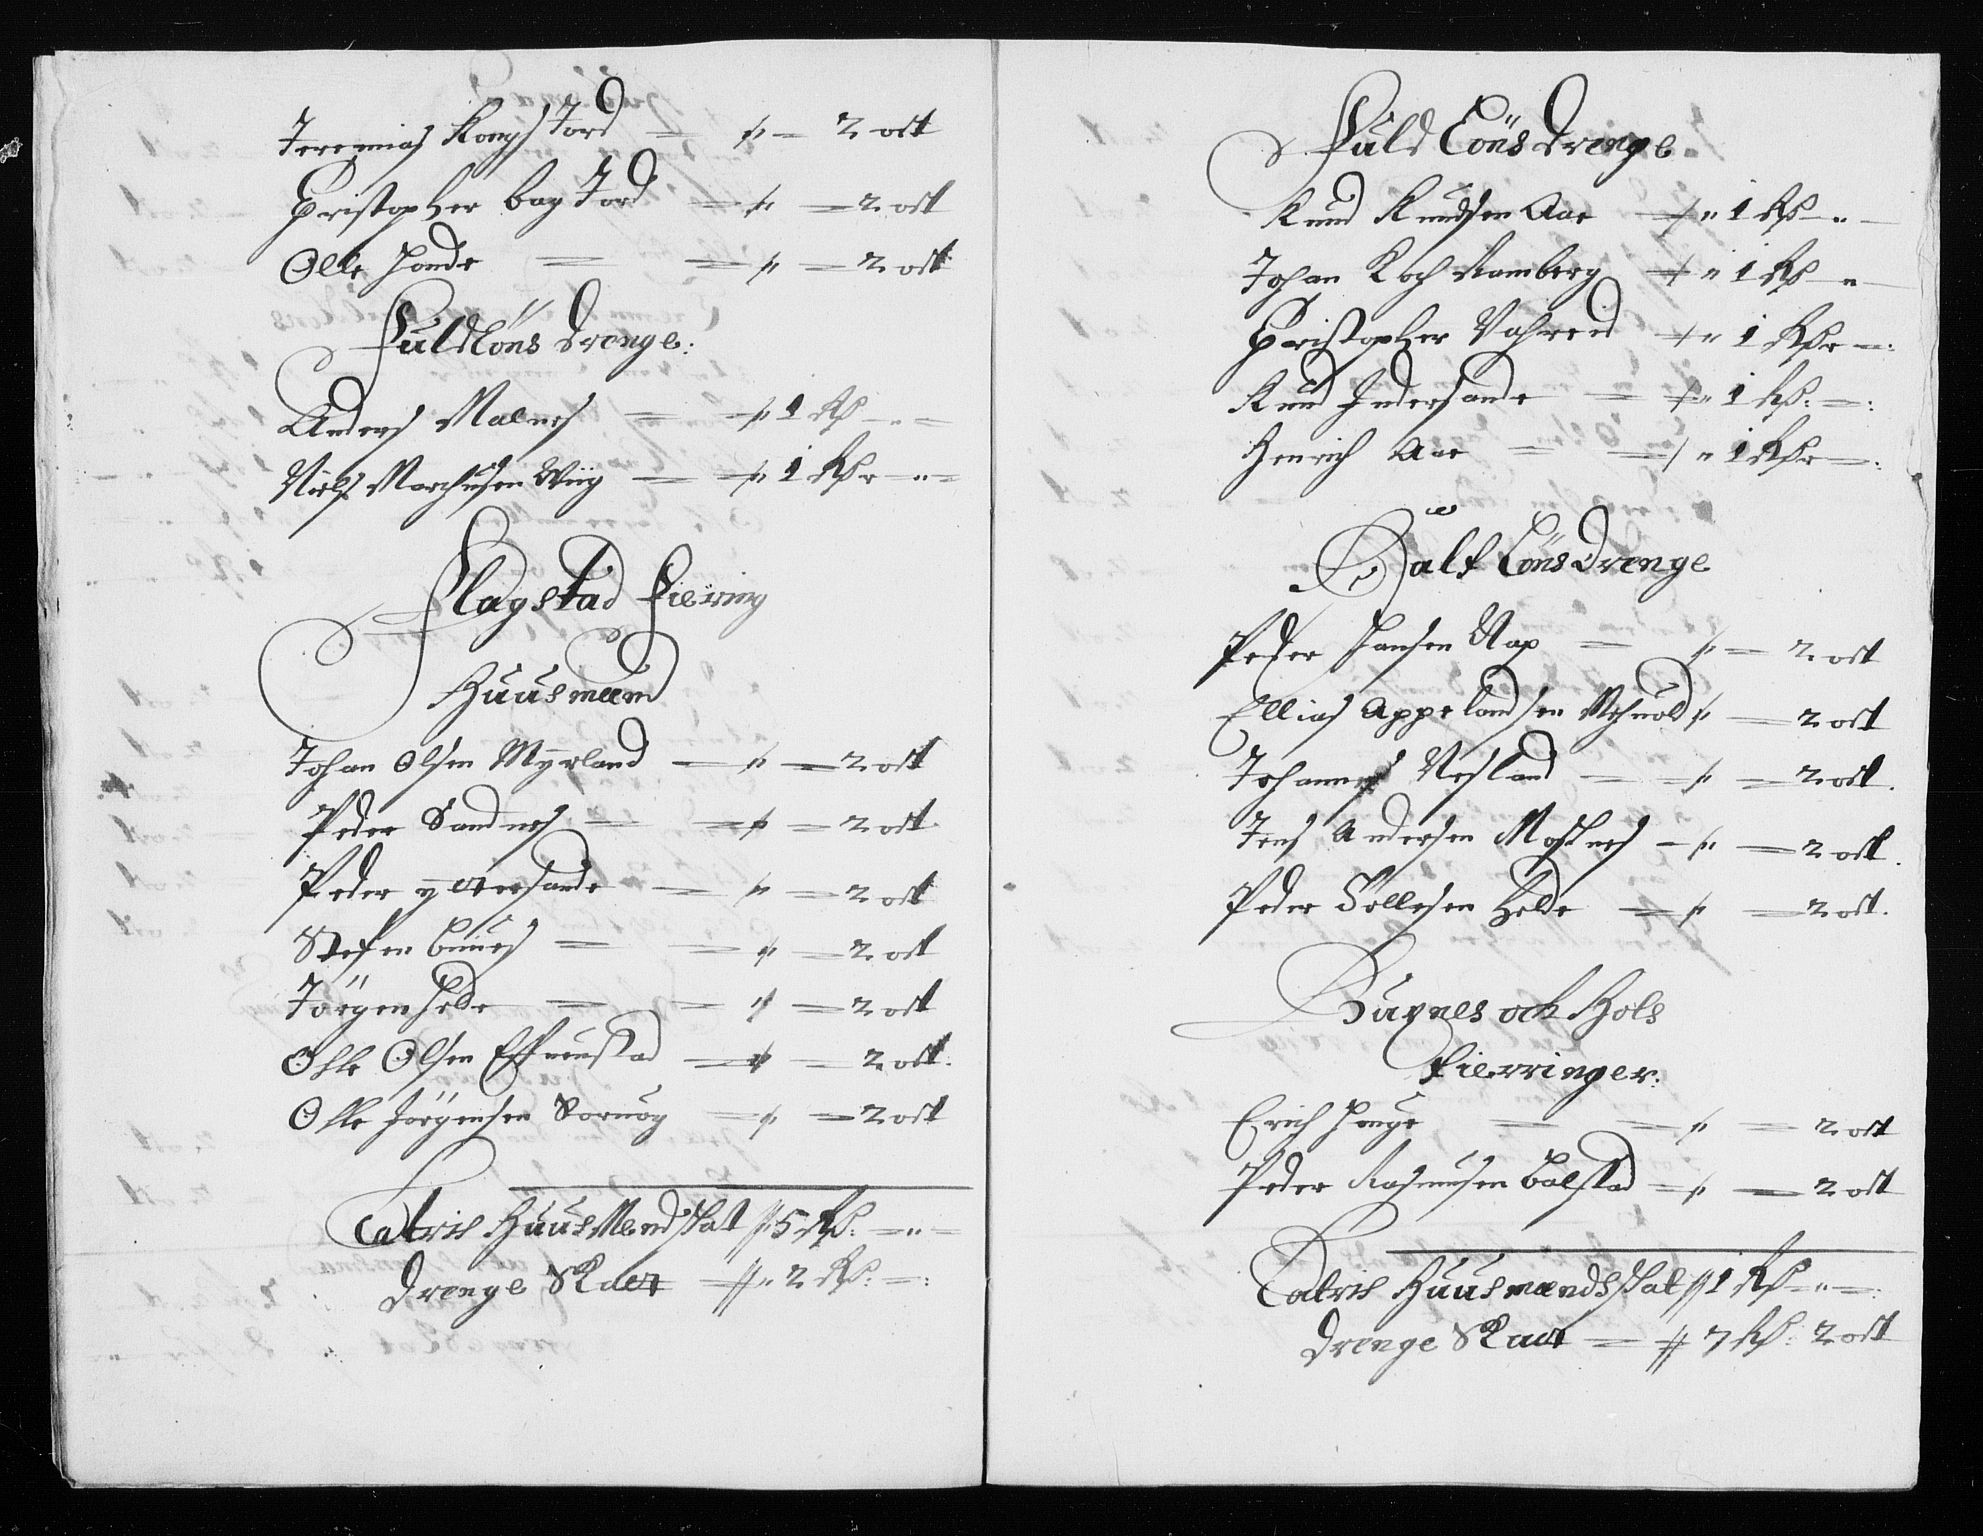 Jeremias Kongs Jord — 2 ort
Christopher bag Jord — 2 ort
Olle Hande — 2 ort
Fuldlöns Drenge:
Anders Malnes — 1 Rd
Niels Marchusen Wiig — 1 Rdr
Flagstad Fiering
Huusmænd
Johan Olsen Myrland — 2 ort
Peder Sandnes — 2 ort
Peder ytersande — 2 ort
Stefen — 2 ort
Jörgen Hede — 2 ort
Olle Olsen — 2 ort.
Olle Jörgensen — 2 ort
Latris HuusMendskat 5 Rd.
Drenge Skatt — 2 Rd.
Fuld Löns Drenge
Knud Knudsen Aae — 1 Rd
Johan Koch Ramberg — 1 Rd
Christopher Vahreid — 1 Rdr
Knud Indersande — 1 Rd.
Henrich Aae — 1 Rdr
Half Löns Drenge
Peder Hansen Nap — 2 ort
Ellias — 2 ort
Johannes Nesland — 2 ort.
Jens Andersen Moschnes — 2 ort.
Peder Töllesen Hede — 2 ort.
Buxnes och Hols
Fierringer:
Erich Hauge — 2 ort
Peder Rasmusen Balstad — 2 ort
Latris Huusmandsskat 1 Rd
Drenge Skatt — 7 Rd. 2 ort